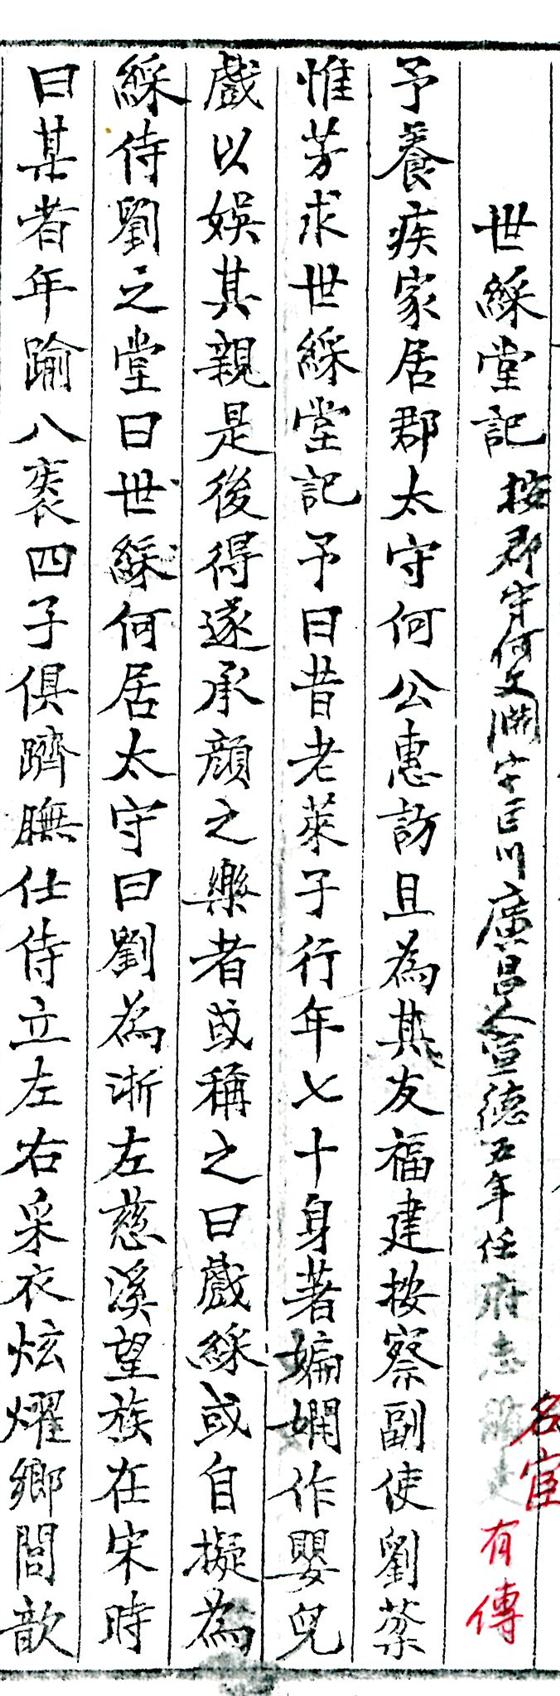 世綵堂記 按郡守何文淵字巨川廣昌人宣德五年任府志 名宦有傳
予養疾家居郡太守何公惠訪且為其友福建按察副使劉棻
惟芳求世綵堂記予曰昔老萊子行年七十身著斒斕作嬰兒
戲以娛其親是後得遂承顔之樂者或稱之曰戲綵或自擬為
綵侍劉之堂曰世綵何居太守曰劉為浙左慈溪望族在宋時
曰某者年踰八袠四子俱躋膴仕侍立左右采衣炫燿鄉閭歆